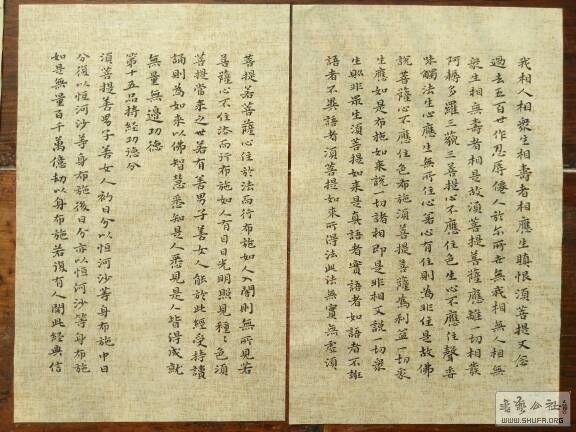 我相人相衆生相壽者相應生瞋恨須菩提又念
過去五百世作忍辱僊人於尔所世無我相無人相無
衆生相無壽者相是故須菩提菩薩應離一切相發
阿耨多羅三藐三菩提心不應住色生心不應住聲香
味觸法生心應生無所住心若心有住則為非住是故佛
說菩薩心不應住色布施須菩提菩薩為利益一切衆
生應如是布施如来說一切諸相即是非相又說一切衆
生即非衆生須菩提如来是真語者實語者如語者不誑
語者不異語者須菩提如来所得法此法無實無虛須
菩提若菩薩心住於法而行布施如人入闇則無所見若
菩薩心不住法而行布施如人有目日光明照見種〻色須
菩提當来之世若有善男子善女人能於此經受持讀
誦則為如来以佛智慧悉知是人悉見是人皆得成就
無量無邊功德
第十五品持經功德分
須菩提善男子善女人初日分以恒河沙等身布施中日
分復以恒河沙等身布施後日分亦以恒河沙等身布施
如是無量百千萬億劫以身布施若復有人聞此經典信
WWW.SHUFA.ORG